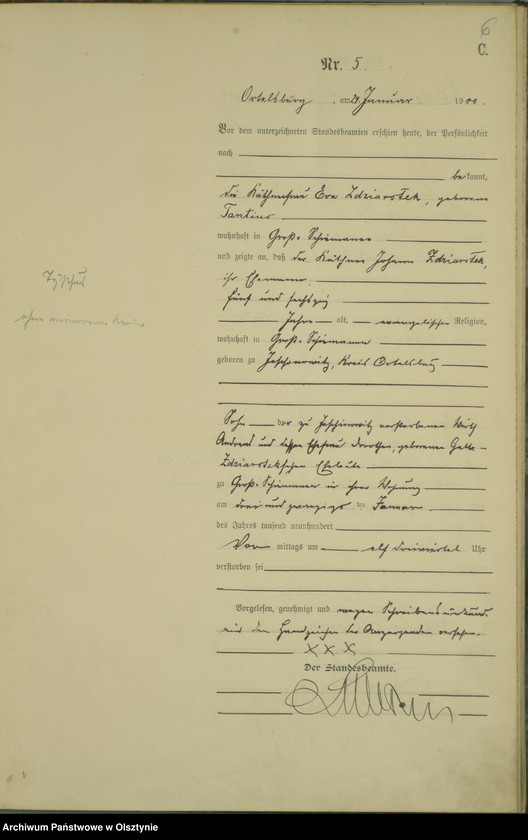 6
C.
Nr. 5
Ortelsburg, am Januar 1900.
Vor dem unterzeichneten Standesbeamten erschien heute, der Persönlichkeit
nach
bekannt,
die Käthnerfrau Eva Zdziarstek, geborene
Tantius
wohnhaft in Groß-Schiemanen
und zeigte an, daß der Käthner Johann Zdziarstek,
ihr Ehemann,
fünf und sechszig
Jahre alt, evangelischer Religion,
wohnhaft in Groß-Schiemanen
geboren zu Kreis Ortelsburg
Sohn der zu verstorbenen Wirth
Andreas und dessen Ehefrau Dorothea, geborenen
Zdziarstekschen Eheleute
zu Groß-Schiemanen in ihrer Wohnung
am drei und zwanzigsten Januar
des Jahres tausend neunhundert
Vormittags um elf dreiviertel Uhr
verstorben sei
Vorgelesen, genehmigt und wegen Schreibensunkunde
mit den Handzeichen der Anzeigenden versehen.
XXX
Der Standesbeamte.
Typhus
ohne
Archiwum Państwowe w Olsztynie